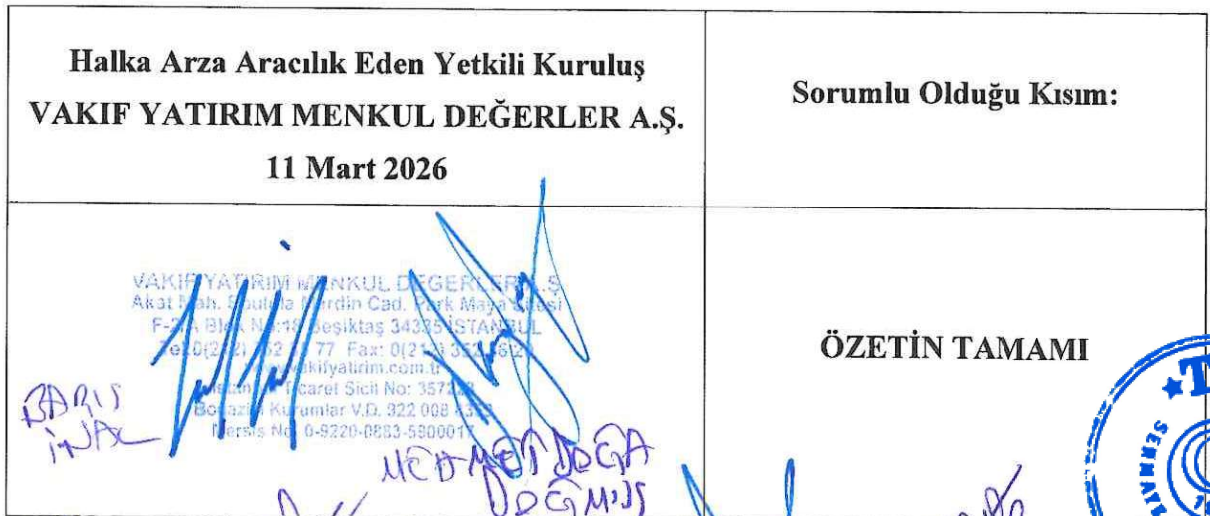 Halka Arza Aracılık Eden Yetkili Kuruluş
VAKIF YATIRIM MENKUL DEĞERLER A.Ş.
11 Mart 2026
Sorumlu Olduğu Kısım:
VAKIF YATIRIM MENKUL DEĞERLER A.Ş
Akat Mah. Mardin Cad. Park Maya Sitesi
Blok No:18 Beşiktaş 34335 İSTANBUL
77 Fax:
Ticaret Sicil No:
Kurumlar V.D. 922 008
Mersis No: 0-9220-0883-5900017
BARIŞ
İNAL
MEHMET
ÖZETİN TAMAMI